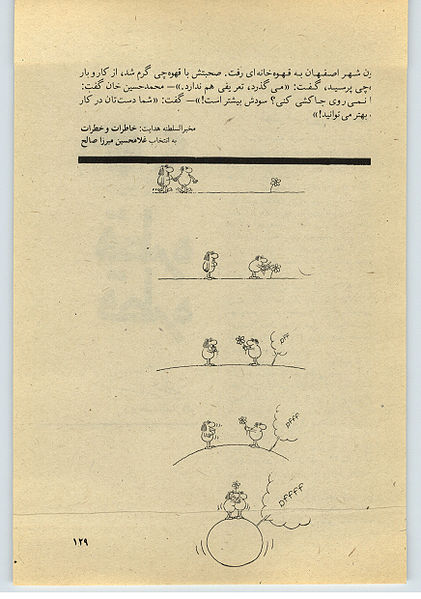 ون شهر اصفهان به قهوه‌خانه‌ای رفت. صحبتش با قهوه‌چی گرم شد، از کار و بار
ه‌چی پرسید، گفت: «می گذرد، تعریفی هم ندارد.»— محمدحسین خان گفت:
ا نمی روی جاکشی کنی؟ سودش بیشتر است!»— گفت: «شما دست‌تان در کار
، بهتر می توانید!»
مخبرالسلطنه هدایت: خاطرات و خطرات
به انتخاب غلامحسین میرزا صالح
pff
pfff
pffff
۱۲۹